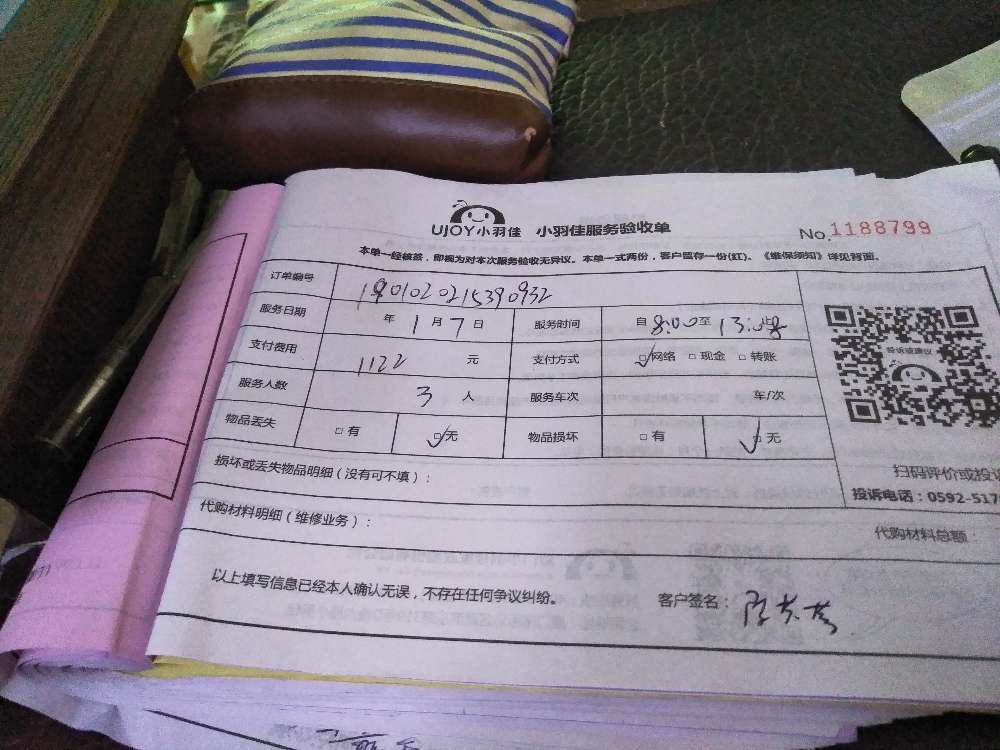 UJOY小羽佳 小羽佳服务验收单 No.1188799
本单一经核签，即视为对本次服务验收无异议。本单一式两份，客户留存一份(红)。《维保须知》详见背面。
订单编号
服务日期 年 1 月 7 日 服务时间 自 8:00 至 13:00 止
支付费用 1122 元 支付方式 □网络 □现金 □转账
服务人数 3 人 服务车次 车/次
物品丢失 □有 □无 物品损坏 □有 □无
损坏或丢失物品明细（没有可不填）：
代购材料明细（维修业务）： 代购材料总额：
以上填写信息已经本人确认无误，不存在任何争议纠纷。 客户签名：
投诉或建议
扫码评价或投
投诉电话：0592-517